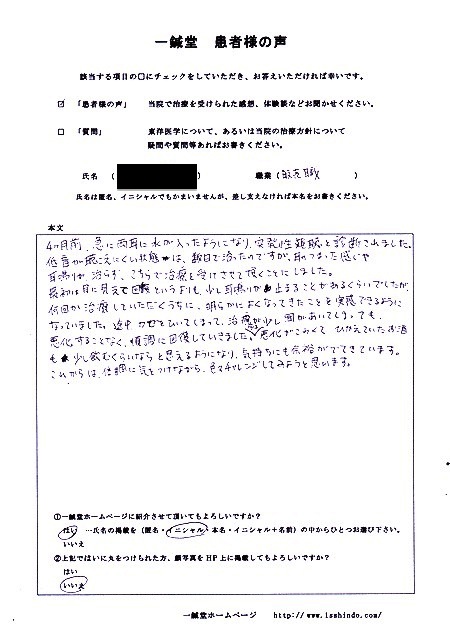 一鍼堂 患者様の声
該当する項目の□にチェックをしていただき、お答えいただければ幸いです。
☑ 「患者様の声」 当院で治療を受けられた感想、体験談などお聞かせください。
□ 「質問」 東洋医学について、あるいは当院の治療方針について
疑問や質問等あればお書きください。
氏名 ( ) 職業 ( 販売職 )
氏名は匿名、イニシャルでもかまいませんが、差し支えなければ本名をお書きください。
本文
4ヶ月前、急に両耳に水が入ったようになり、突発性難聴と診断されました。
低音が聴こえにくい状態は、数日で治ったのですが、耳のつまった感じや
耳鳴りが治らず、こちらで治療を受けさせて頂くことにしました。
最初は目に見えて回復というよりも、少し耳鳴りが止まることがあるくらいでしたが、
何回か治療していただくうちに、明らかによくなってきたことを実感できるように
なっていました。途中カゼをひいてしまって、治療が少し間があいてしまっても、
悪化することなく、順調に回復していきました。悪化がこわくて ひかえていたお酒
も 少し飲むくらいならと思えるようになり、気持ちにも余裕がでてきています。
これからは、体調に気をつけながら、色々チャレンジしてみようと思います。
①一鍼堂ホームページに紹介させて頂いてもよろしいですか？
はい …氏名の掲載を（匿名・イニシャル・本名・イニシャル＋名前）の中からひとつお選び下さい。
いいえ
②上記ではいに丸をつけられた方、顔写真をHP上に掲載してもよろしいですか？
はい
いいえ
一鍼堂ホームページ http://www.isshindo.com/